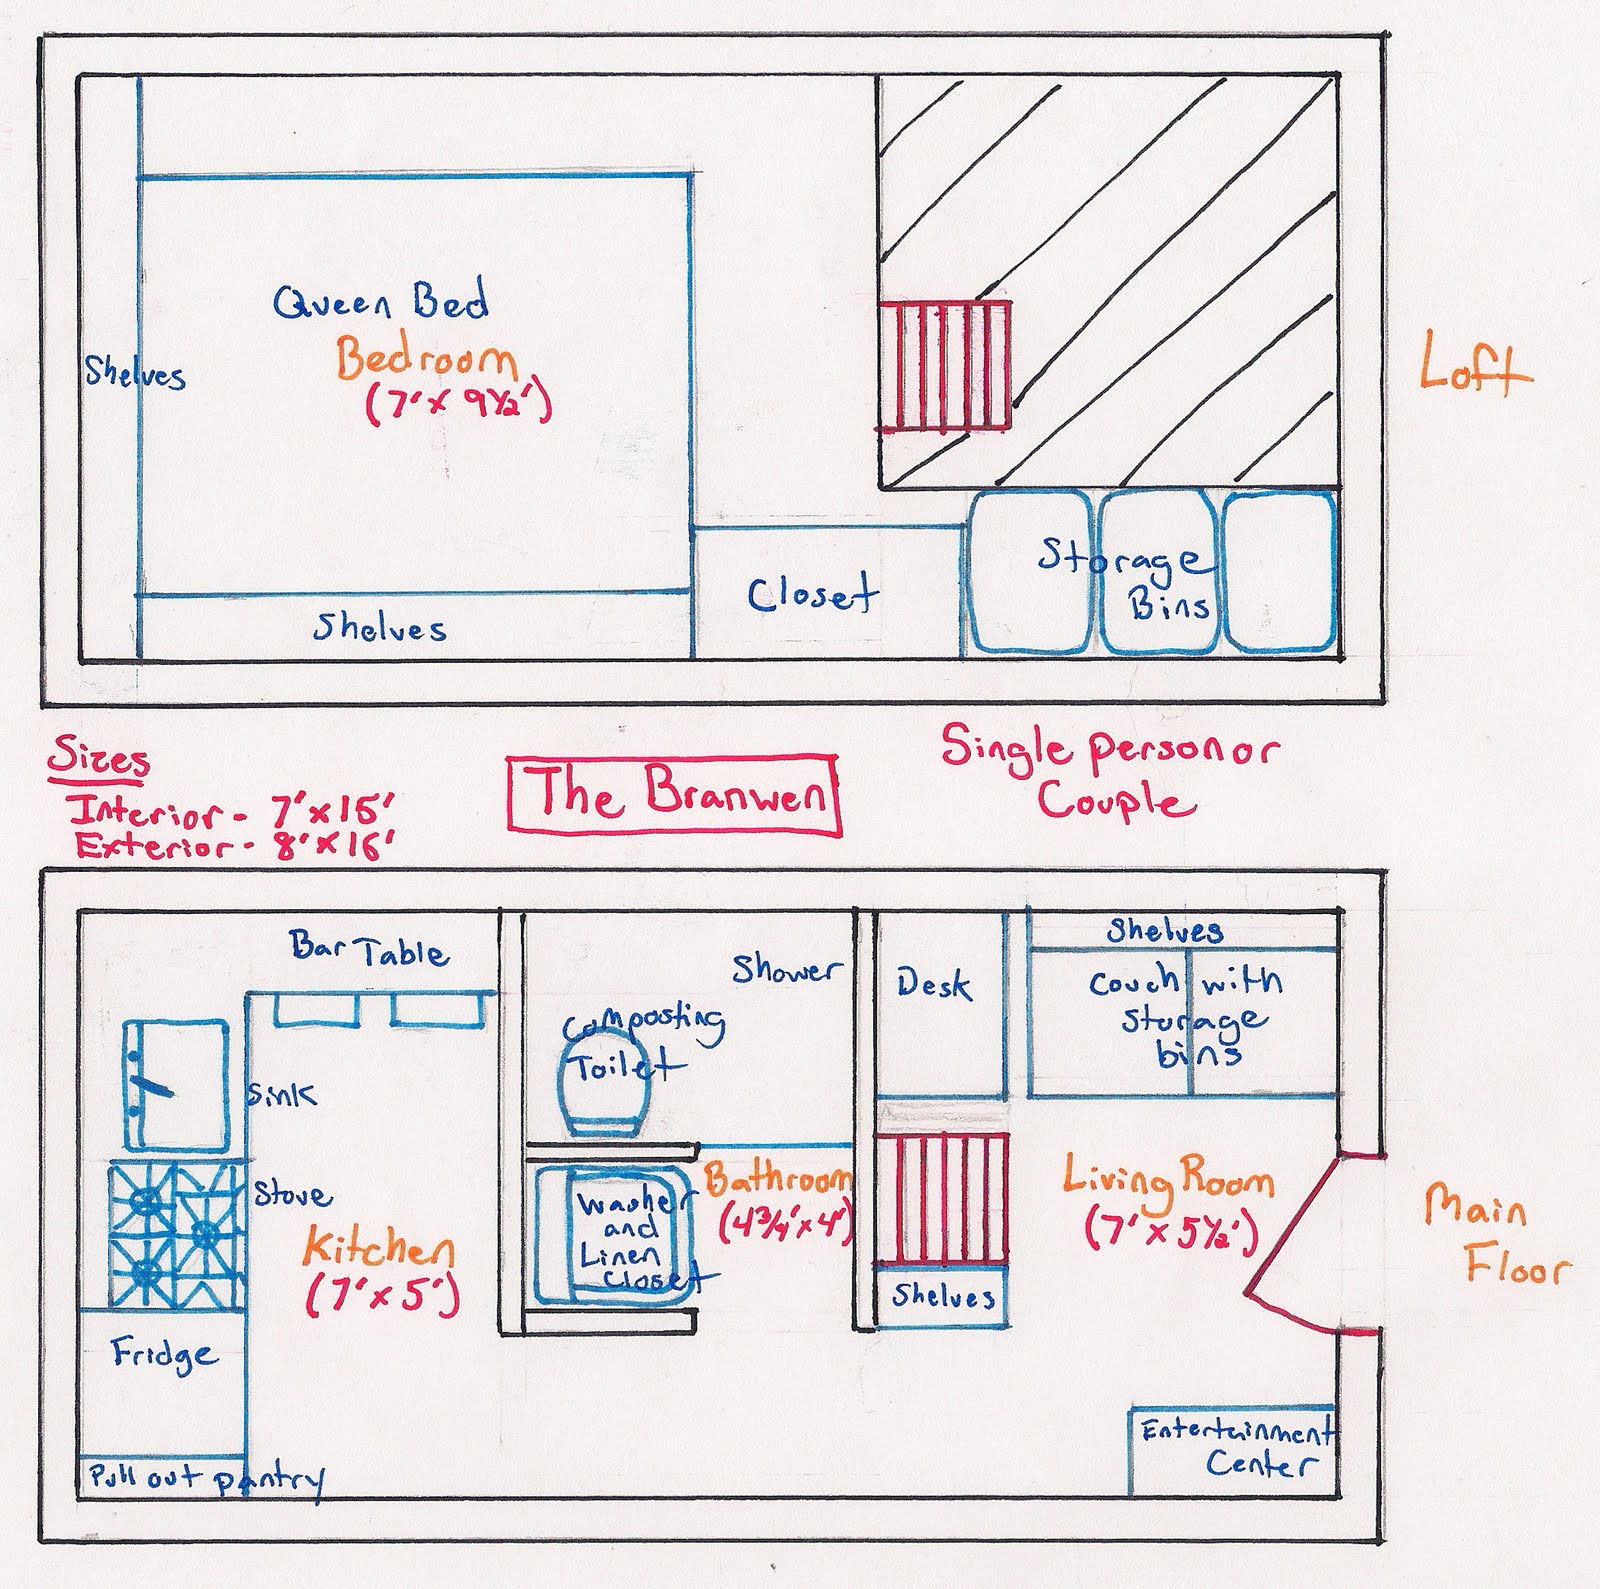 Queen Bed
Bedroom
(7' x 9½')
Shelves
Shelves
Closet
Storage
Bins
Loft
Sizes
Interior - 7' x 15'
Exterior - 8' x 16'
The Branwen
Single person or
Couple
Bar Table
Sink
Stove
Kitchen
(7' x 5')
Fridge
Pull out pantry
Shower
Composting
Toilet
Washer
and
Linen
Closet
Bathroom
(4¾' x 4')
Desk
Shelves
Shelves
Couch with
Storage
bins
Living Room
(7' x 5½')
Entertainment
Center
Main
Floor